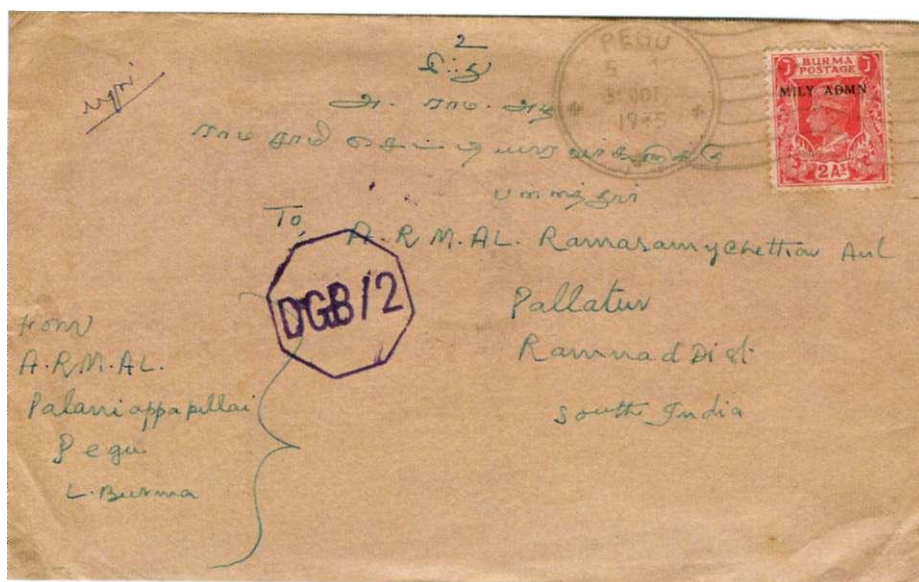 PEGU
5
31 OCT
1945
BURMA
POSTAGE
MILY ADMN
2 AS
2
அ. ராம. அழ
ராமசாமி செட்டியாரவர்களுக்கு
பள்ளத்தூர்
To,
A.R.M.AL. Ramasamychettiar Avl
Pallatur
Ramnad Dist.
South India
DGB/2
from
A.R.M.AL.
Palaniappapillai
Pegu
L. Burma